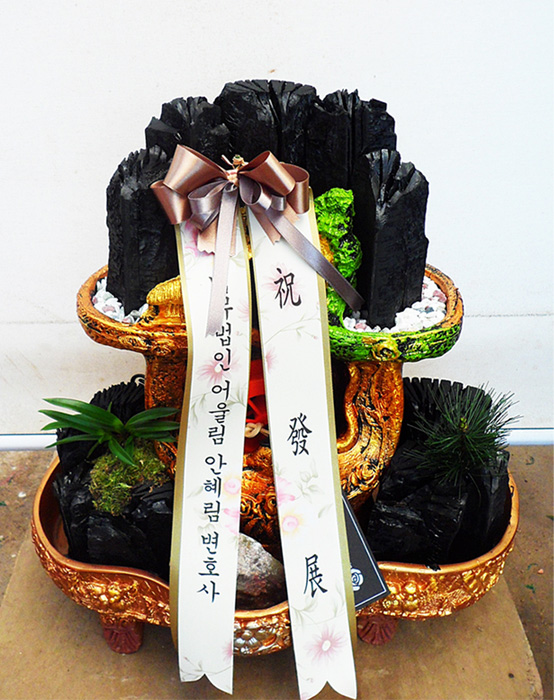 법인 어울림 안혜림 변호사
祝發展